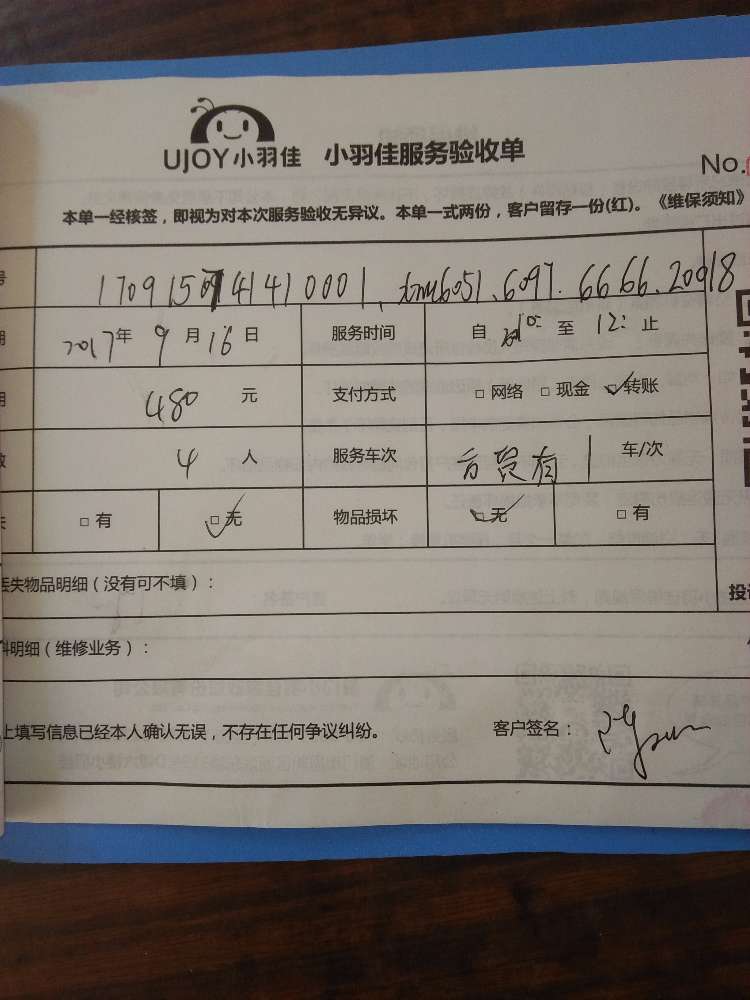 UJOY小羽佳 小羽佳服务验收单
No.
本单一经核签，即视为对本次服务验收无异议。本单一式两份，客户留存一份(红)。《维保须知》
号 6051、6097. 6666.20918
期 2017年 9月16日 服务时间 自 至 12: 止
用 480 元 支付方式 □ 网络 □ 现金 □ 转账
数 4 人 服务车次 1 车/次
失 □ 有 □ 无 物品损坏 □ 无 □ 有
丢失物品明细（没有可不填）：
投诉
料明细（维修业务）：
上填写信息已经本人确认无误，不存在任何争议纠纷。 客户签名：